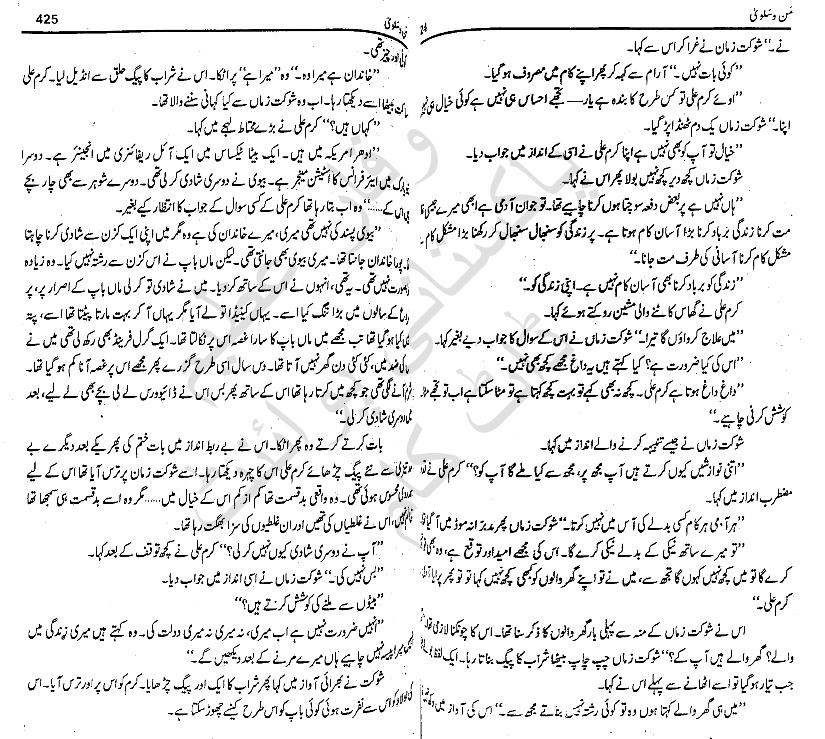 من وسلویٰ
نے۔“ شوکت زمان نے غرا کر اس سے کہا۔
”کوئی بات نہیں۔“ آرام سے کہہ کر پھر اپنے کام میں مصروف ہو گیا۔
”اوئے کرم علی تو کس طرح کا بندہ ہے یار— تجھے احساس ہی نہیں ہے کوئی خیال ہی نہیں
اپنا۔“ شوکت زماں یک دم ٹھنڈا پڑ گیا۔
”خیال تو آپ کو بھی نہیں ہے اپنا کرم علی نے اسی کے انداز میں جواب دیا۔
شوکت زماں کچھ دیر کچھ نہیں بولا پھر اس نے کہا۔
”ہاں نہیں ہے پر بعض دفعہ سوچتا ہوں کرنا چاہیے تھا۔ تو جوان آدمی ہے ابھی میرے جیسی
مت کرنا زندگی برباد کرنا بڑا آسان کام ہوتا ہے۔ پر زندگی کو سنبھال سنبھال کر رکھنا بڑا مشکل کام
مشکل کام کرنا آسانی کی طرف مت جانا۔“
”زندگی کو برباد کرنا بھی آسان کام نہیں ہے۔ اپنی زندگی کو۔“
کرم علی نے گھاس کاٹنے والی مشین روکتے ہوئے کہا۔
”میں علاج کرواؤں گا تیرا۔“ شوکت زماں نے اس کے سوال کا جواب دیے بغیر کہا۔
”اس کی کیا ضرورت ہے؟ کیا کہتے ہیں یہ داغ مجھے کچھ بھی نہیں۔“
”داغ داغ ہوتا ہے کرم علی۔ کچھ نہ بھی کہے تو بہت کچھ کہتا ہے تو مٹا سکتا ہے اب تو تجھے
کوشش کرنی چاہیے۔“
شوکت زماں نے جیسے تنبیہہ کرنے والے انداز میں کہا۔
”اتنی نوازشیں کیوں کرتے ہیں آپ مجھ پر، مجھ سے کیا ملے گا آپ کو؟“ کرم علی نے
مضطرب انداز میں کہا۔
”ہر آدمی ہر کام کسی بدلے کی آس میں نہیں کرتا۔“ شوکت زماں پھر مدبرانہ موڈ میں آ گیا
”تو میرے ساتھ نیکی کے بدلے نیکی کرے گا۔ اس کی مجھے امید اور توقع ہے، وہ بھی
کرے گا تو میں کچھ نہیں کہوں گا تجھ سے، میں نے تو اپنے گھر والوں کو بھی کچھ نہیں کہا تو تو پھر
کرم علی۔“
اس نے شوکت زماں کے منہ سے پہلی بار گھر والوں کا ذکر سنا تھا۔ اس کا چونکنا لازمی تھا۔
والے؟ گھر والے ہیں آپ کے؟“ شوکت زماں چپ چاپ بیٹھا شراب کا پیگ بناتا رہا۔ ایک لفظ
جب تیار ہو گیا تو اسے اٹھانے سے پہلے اس نے کہا۔
”میں ہی گھر والے کہتا ہوں وہ تو کوئی رشتہ نہیں بناتے مجھ سے۔“ اس کی آواز میں
425
من وسلویٰ
اور چیز تھی۔
”خاندان ہے میرا وہ۔“ وہ ”میرا ہے“ پر اٹکا۔ اس نے شراب کا پیگ حلق سے انڈیل لیا۔ کرم علی
بیٹھا اسے دیکھتا رہا۔ اب وہ شوکت زماں سے کیا کہانی سننے والا تھا۔
”کہاں ہیں؟“ کرم علی نے بڑے محتاط لہجے میں کہا۔
”ادھر امریکہ میں ہیں۔ ایک بیٹا ٹیکساس میں ایک آئل ریفائنری میں انجینئر ہے۔ دوسرا
میں ایئر فرانس کا اسٹیشن مینجر ہے۔ بیوی نے دوسری شادی کر لی تھی۔ دوسرے شوہر سے بھی چار بچے
اس کے……“ وہ اب بتا رہا تھا کرم علی کے کسی سوال کے جواب کا انتظار کیے بغیر۔
”بیوی پسند کی نہیں تھی میری، میرے خاندان کی ہے وہ مگر میں اپنی ایک کزن سے شادی کرنا چاہتا
پورا خاندان جانتا تھا۔ میری بیوی بھی جانتی تھی۔ لیکن ماں باپ نے اس کزن سے رشتہ نہیں کیا۔ وہ زیادہ
نہیں تھی۔ یہ تھی، انہوں نے اس کے ساتھ کر دیا۔ میں نے شادی تو کر لی ماں باپ کے اصرار پر، پر
کے سالوں میں بڑا تنگ کیا اسے۔ یہاں کینیڈا تو لے آیا مگر یہاں آ کر بہت مارتا پیٹتا تھا اسے، پتہ
کیا ہو گیا تھا تب مجھے میں ماں باپ کا سارا غصہ اس پر نکالتا تھا۔ ایک گرل فرینڈ بھی رکھ لی تھی میں نے
ضد میں، کئی کئی دن گھر نہیں آتا تھا۔ دس سال اسی طرح گزرے پھر مجھے اس پر غصہ آنا کم ہو گیا تھا۔
آنے لگی تھی جو کچھ میں کرتا رہا تھا اس کے ساتھ پھر بس اس نے ڈائیوورس لے لی بچے بھی لے لیے، بعد
دوسری شادی کر لی۔“
بات کرتے کرتے وہ پھر اٹکا۔ اس نے بے ربط انداز میں بات ختم کی پھر یکے بعد دیگرے بے
سے نئے پیگ چڑھائے کرم علی اس کا چہرہ دیکھتا رہا۔ اسے شوکت زماں پر ترس آیا تھا اس کے لیے
محسوس ہوئی تھی۔ وہ واقعی بدقسمت تھا کم از کم اس کے خیال میں…… مگر وہ اسے بدقسمت ہی سمجھا تھا
اس نے غلطیاں کی تھیں اور ان غلطیوں کی سزا بھگت رہا تھا۔
”آپ نے دوسری شادی کیوں نہیں کر لی؟“ کرم علی نے کچھ توقف کے بعد کہا۔
”بس نہیں کی۔“ شوکت زماں نے اسی انداز میں جواب دیا۔
”بیٹوں سے ملنے کی کوشش کرتے ہیں؟“
”انہیں ضرورت نہیں ہے اب میری، نہ میری نہ میری دولت کی۔ وہ کہتے ہیں میری زندگی میں
نہیں چاہیے ہاں میرے مرنے کے بعد دیکھیں گے۔“
شوکت نے بھرائی آواز میں کہا پھر شراب کا ایک اور پیگ چڑھایا۔ کرم کو اس پر اور ترس آیا۔ اس
کو اس سے نفرت ہوئی کوئی باپ کو اس طرح کیسے چھوڑ سکتا ہے۔